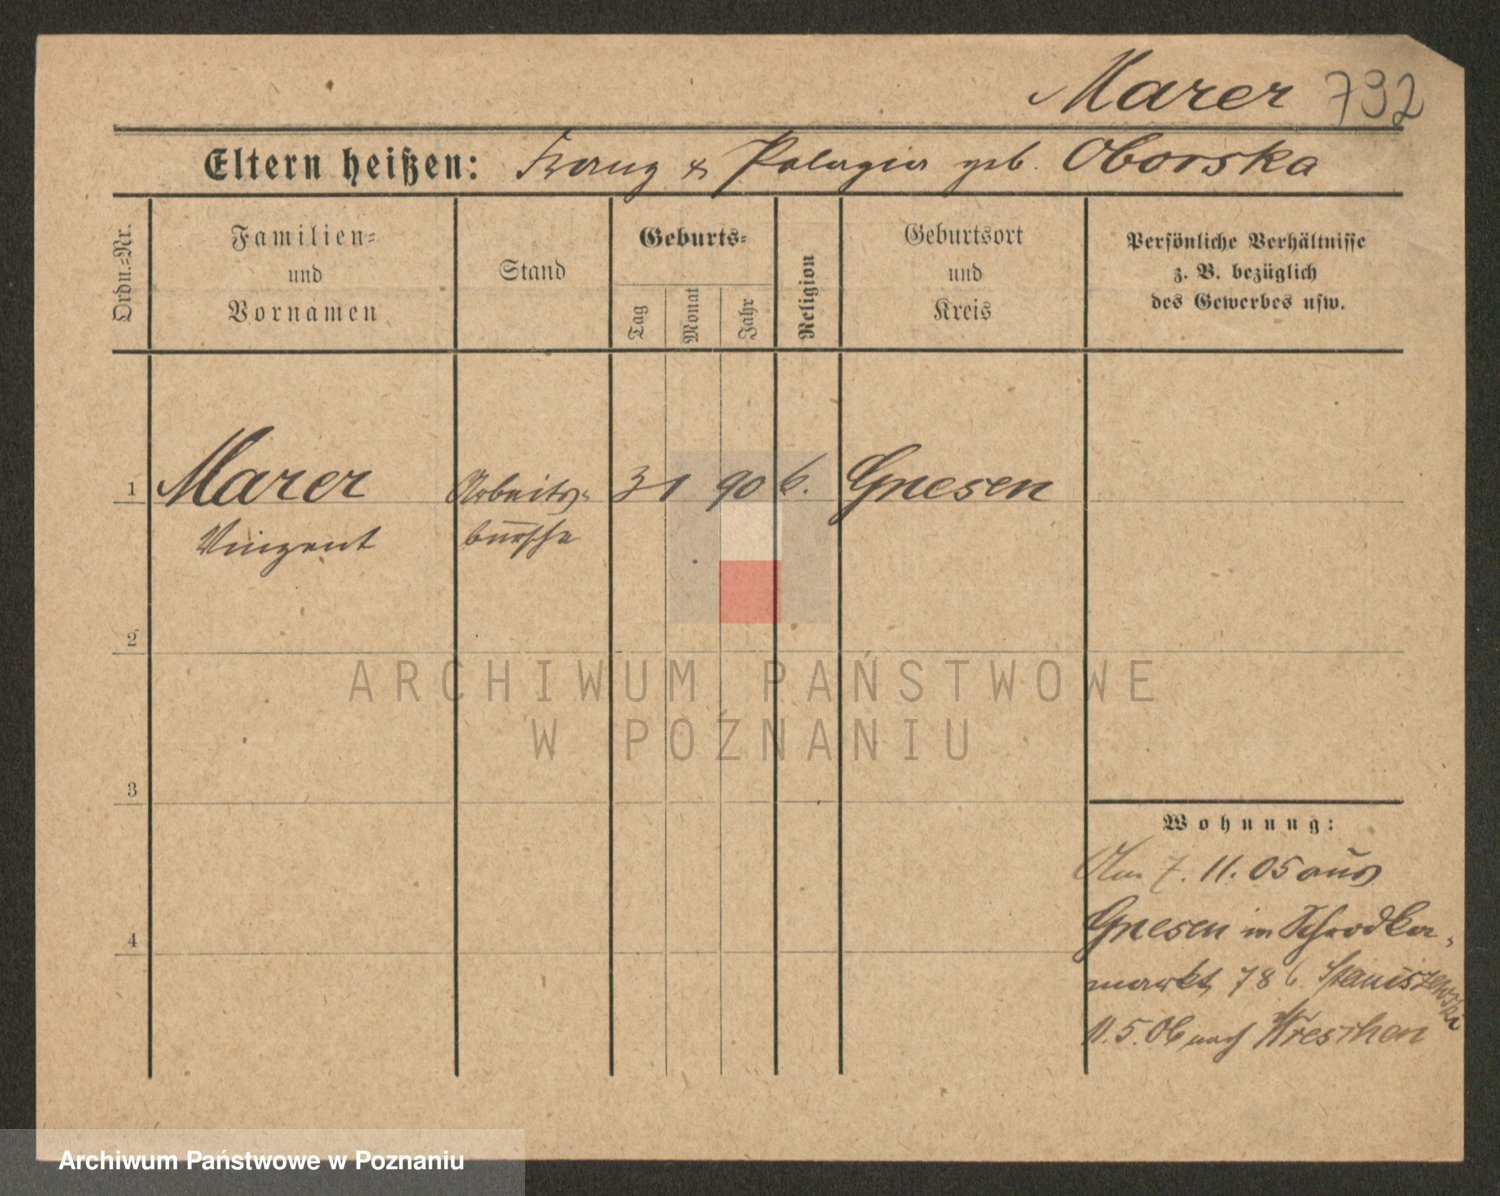 Marer 792
Eltern heißen: Franz & Pelagia geb. Oborska
Ordn.=Nr.
Familien=
und
Vornamen
Stand
Geburts=
Tag
Monat
Jahr
Religion
Geburtsort
und
Kreis
Persönliche Verhältnisse
z. B. bezüglich
des Gewerbes usw.
1 Marer Arbeits= 3 1 90 Gnesen
Vinzent bursche
2
3
4
Wohnung:
Am 7. 11. 05 aus
Gnesen in Schrodka=
markt 78 b. Staniszewska
11. 5. 06 nach Wreschen
ARCHIWUM PAŃSTWOWE
W POZNANIU
Archiwum Państwowe w Poznaniu